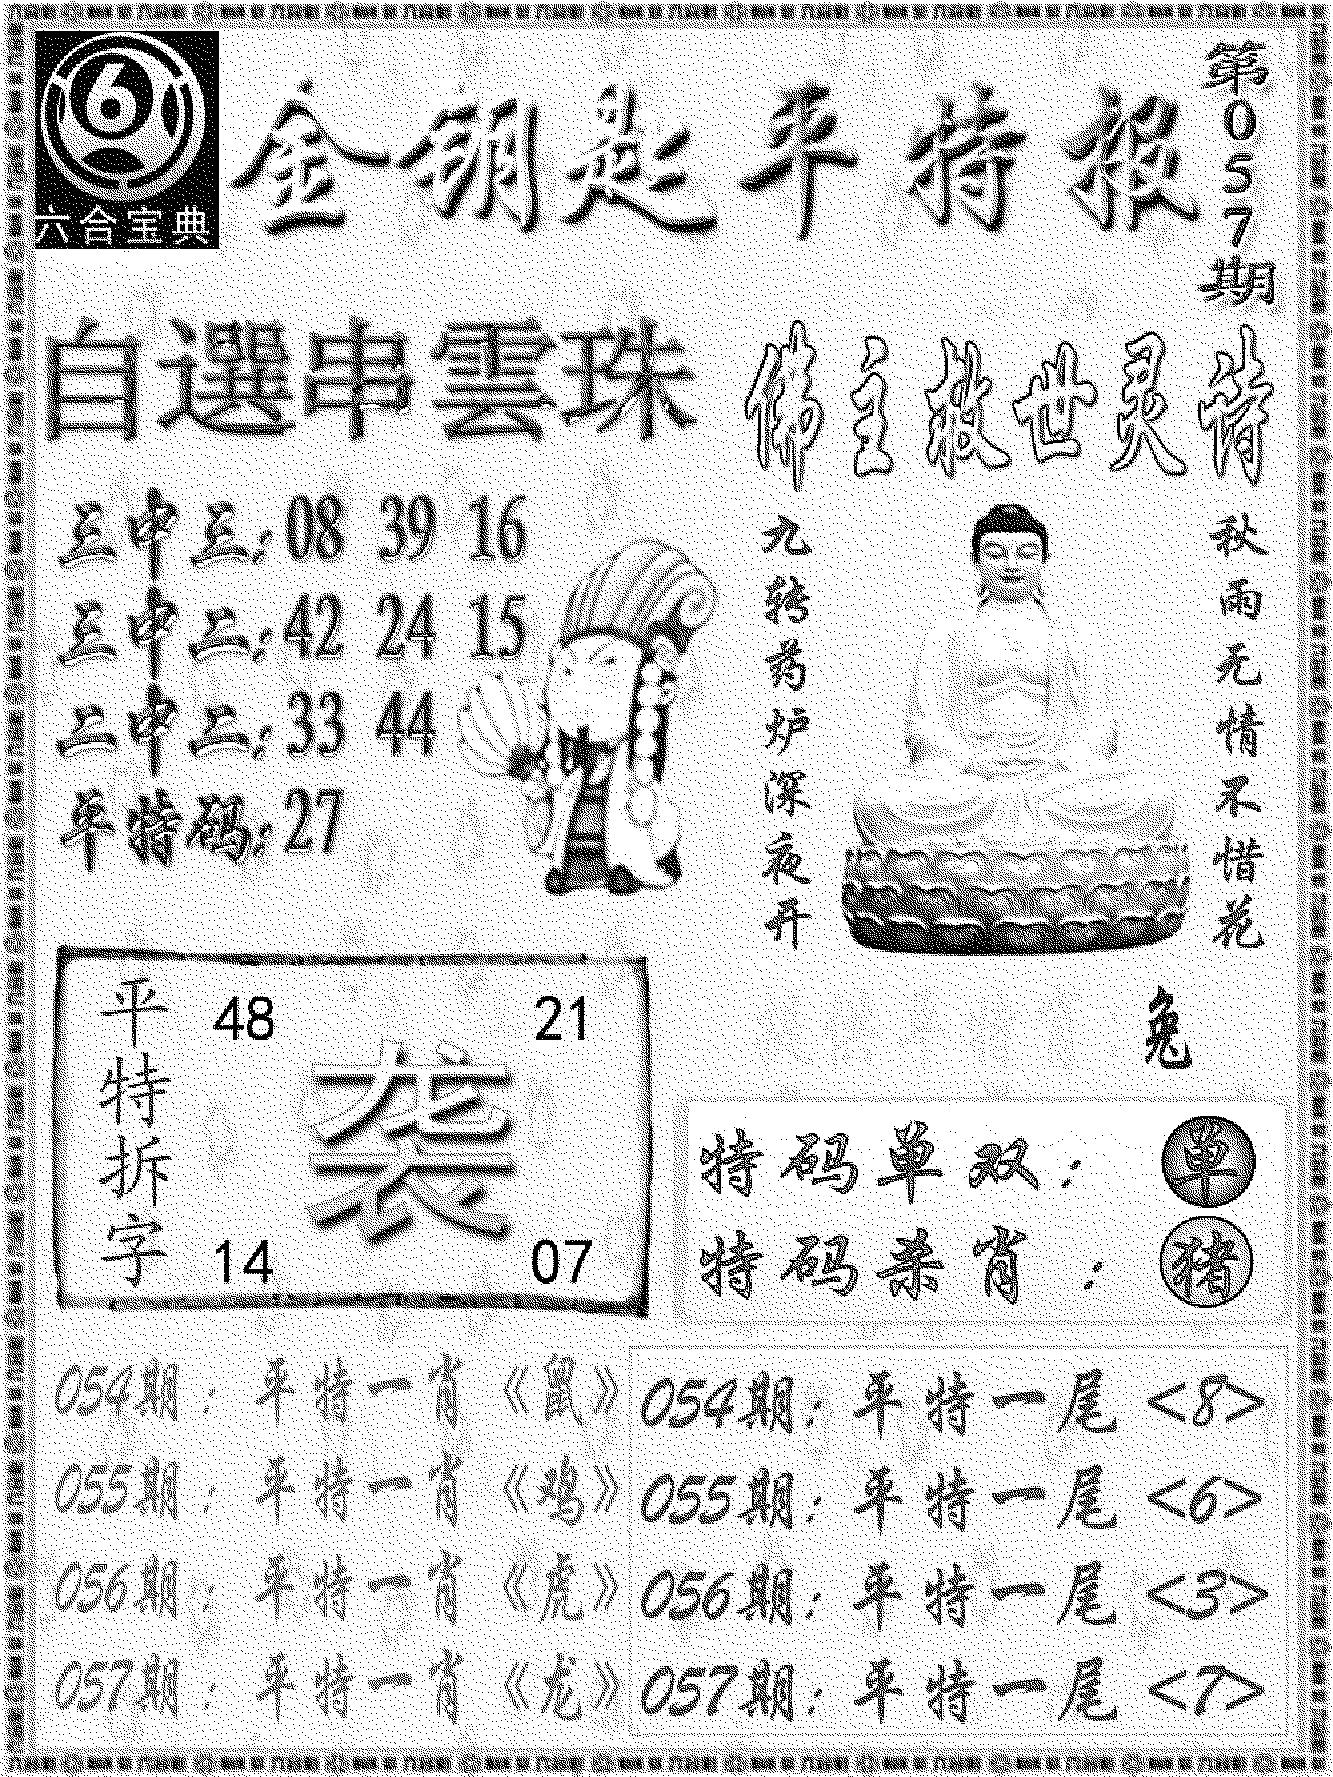 6
六合宝典
金钥匙平特报
第057期
自選串雲珠
三中三:08 39 16
三中二:42 24 15
二中二:33 44
平特码:27
佛主救世灵诗
秋雨无情不惜花
九转药炉深夜开
兔
平特拆字
48 21
袭
14 07
特码单双:单
特码杀肖:猪
054期:平特一肖《鼠》
055期:平特一肖《鸡》
056期:平特一肖《虎》
057期:平特一肖《龙》
054期:平特一尾<8>
055期:平特一尾<6>
056期:平特一尾<3>
057期:平特一尾<7>